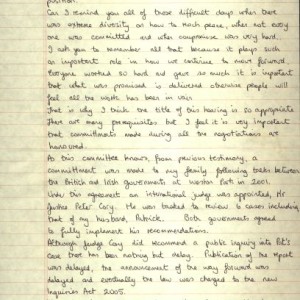 position.
Can I remind you all of those difficult days when there
was extreme diversity as how to reach peace, when not every
one was committed and when compromise was very hard.
I ask you to remember all that because it plays such
an important role in how we continue to move forward.
Everyone worked so hard and gave so much it is important
that what was promised is delivered otherwise people will
feel all the work has been vain
that is why I think the title of this hearing is so appropriate
There are many prerequisites but I feel it is very important
that commitments made during all the negotiations are
honoured.
As this committee knows, from previous testimony, a
committment was made to my family following talks between
the British and Irish governments at Weston Park in 2001.
Under this agreement an international judge was appointed, Mr
Justice Peter Cory. He was tasked to review 6 cases including
that of my husband, Patrick. Both governments agreed
to fully implement his recommendations.
Although Judge Cory did recommend a public inquiry into Pat's
case there has been nothing but delay. Publication of the report
was delayed, the announcement of the way forward was
delayed and eventually the law was changed to the new
Inquiries Act 2005.